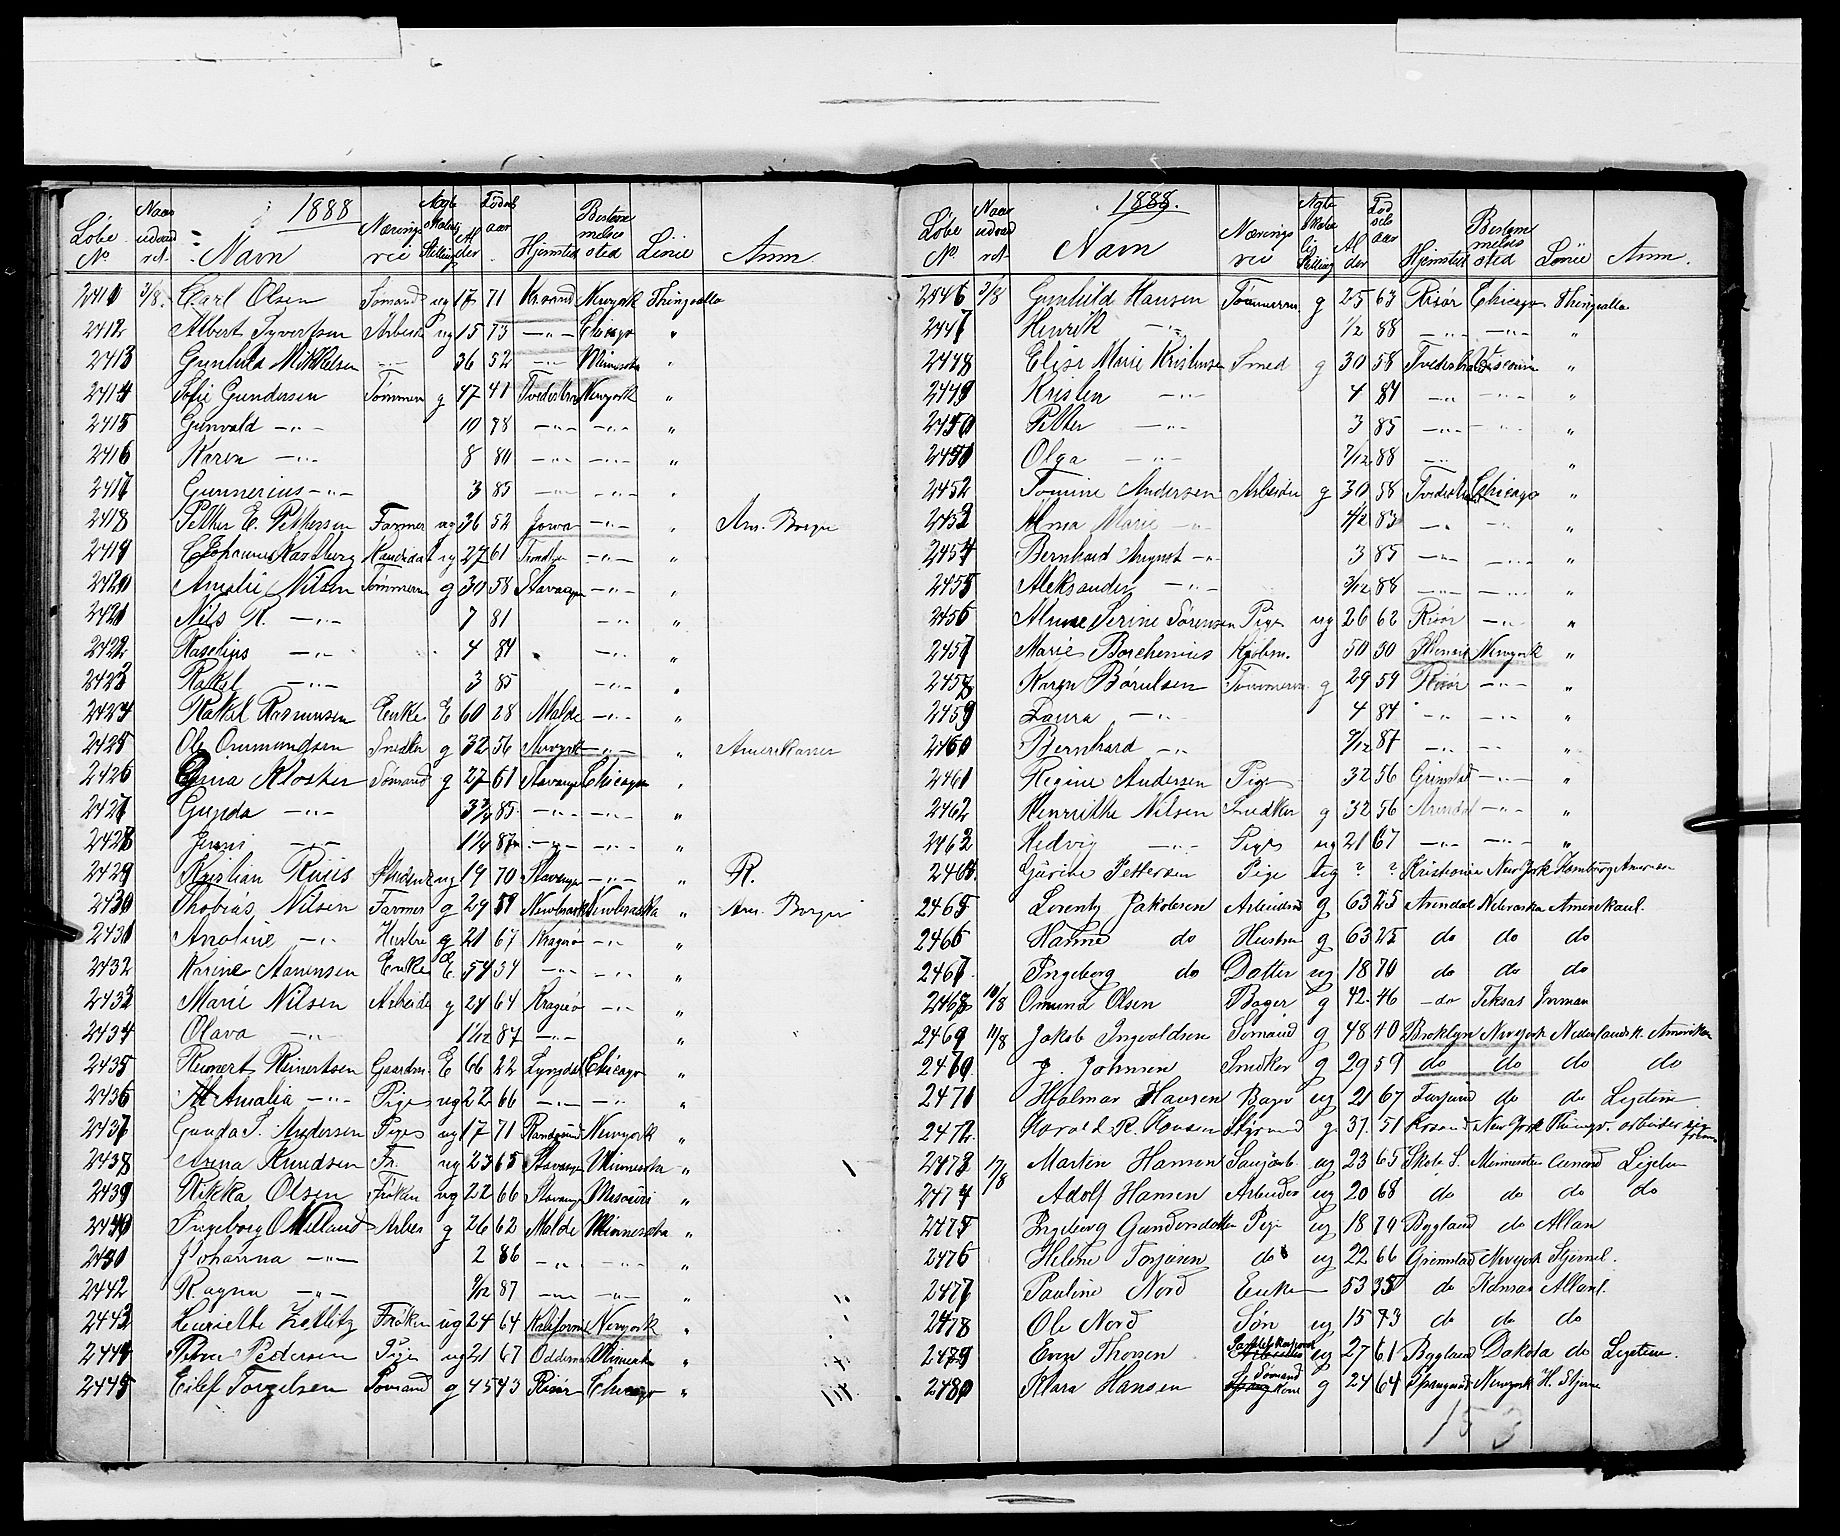 1888
Løbe No Naar udvad ret Navn Nærings vei Ægte skabelig Stilling Al der Fødsels aar Hjemsted Bestem melses sted Linie Anm
2411 3/8. Carl Olsen Sømand ug 17 71 Krsand Newyork Thingvalla
2412 Albert Syvertsen Arbeider ug 15 73 -"- Chicago "
2413 Gunhilda Mikkelsen -"- 36 52 -"- Minnesota "
2414 Sofie Gundersen Tømmerm g 47 41 Tvedestrand Newyork "
2415 Gunvald -"- 10 78 -"- -"- "
2416 Karen -"- 8 80 -"- -"- "
2417 Gunnerius -"- 3 85 -"- -"- "
2418 Petter E. Pettersen Farmer ug 36 52 Jowa -"- " Am. Borger
2419 ug 27 61 -"- "
2420 Amalie Nilsen Tømmerm g 30 58 Stavanger -"- "
2421 Nils R. -"- 7 81 -"- "
2422 -"- 4 84 -"- "
2423 Rakel -"- 3 85 -"- "
2424 Rakel Rasmusen Enke E 60 28 Molde -"- "
2425 Ole Ommundsen Snedker g 32 56 Newyork -"- " Amerikaner
2426 Gina Kloster Sømand g 27 61 Stavanger Chicago "
2427 Gunda -"- 3 1/2 85 -"- -"- "
2428 Jenni -"- 1 1/4 87 -"- -"- "
2429 Kristian Ruus Student ug 19 70 Stavanger -"- " R.
2430 Thobias Nilsen Farmer g 29 59 Newbraska Newbraska " Am. Borger
2431 Anoline -"- Hustru g 21 67 Kragerø -"- "
2432 Karine Enke E 54 34 -"- -"- "
2433 Marie Nilsen Arbeider g 24 64 Kragerø -"- "
2434 Olava -"- 1/12 87 -"- "
2435 Reinert Reinertsen Gaardm. E 66 22 Lyngdal Chicago "
2436 M Amalia -"- Pige ug 22 66 -"- -"- "
2437 Gunda S. Andersen Pige ug 17 71 Randesund Newyork "
2438 Arena Knudsen Fr. ug 23 65 Stavanger Minnesota "
2439 Rikka Olsen Frøken ug 22 66 Stavanger Missouri "
2440 Ingeborg O Melland Arbei g 26 62 Molde Minnesota "
2441 Johanna -"- 2 86 -"- -"- "
2442 Ragna -"- 9/12 87 -"- -"- "
2443 Henriette Zetlitz Frøken ug 24 64 Kaliforni Newyork "
2444 Petra Pedersen Pige ug 21 67 Oddernes Minnesota "
2445 Eilef Torgelsen Sømand g 45 43 Risør Chicago "
1888.
Løbe No Naar udvad ret Navn Nærings vei Ægte skabe lig Stilling Al der Fød sels aar Hjemsted Bestem melses sted Linie Anm.
2446 3/8 Gunhild Hansen Tømmerm g 25 63 Risør Chicago Thingvalla
2447 Henrik -"- 1/2 88 -"- -"- "
2448 Elise Marie Kristensen Smed g 30 58 Tvedestrand Visconsin "
2449 Kristen -"- 4 84 -"- -"- "
2450 Petter -"- 3 85 -"- -"- "
2451 Olga -"- 7/12 88 -"- "
2452 Tomine Andersen Arbeider g 30 58 Tvedestrand Chicago "
2453 Alma Marie -"- 4 1/2 83 -"- -"- "
2454 Bernhard August -"- 3 85 -"- -"- "
2455 Aleksander -"- 3/12 88 -"- -"- "
2456 Serine Sørensen Pige ug 26 62 Risør -"- "
2457 Marie Borchenius Kjøbm. 50 30 Newyork "
2458 Karen Tømmerm g 29 59 Risør -"- "
2459 Laura -"- 4 84 -"- -"- "
2460 Bernhard -"- 9/12 87 -"- -"- "
2461 Regine Andersen Pige 32 56 Grimstad -"- "
2462 Henriette Nilsen Snedker g 32 56 Arendal -"- "
2463 Hedvig -"- Pige ug 21 67 -"- -"- "
2464 Pettersen Pige ug ? ? Kristiania New York Hamburg American
2465 Lorentz Jakobsen Arbeider g 63 25 Arendal Nebraska Amerikanl.
2466 Hanne do Hustru g 63 25 do do do
2467 Ingeborg do Datter ug 18 70 do do do
2468 10/8 Omund Olsen Bager g 42 46 -do Teksas Inman
2469 11/8 Jakob Ingvoldsen Sømand g 48 40 Broklyn Newyork Nederlandsk. Amerikan
2470 J. Johnsen Snedker g 29 59 do do do do
2471 Hjalmar Hansen Bager ug 21 67 Farsund do do Ligetime
2472 Harald R. Hansen Styrmand g 37. 51 Krsand New York Thingv. arbeider sig frem
2473 17/8 Martin Hansen ug 23 65 Minnesota Cunard Ligetim
2474 Adolf Hansen Arbeider ug 20 68 do do do do
2475 Ingeborg Gundersdatter Pige ug 18 70 Bygland do Allan
2476 Helene Torjusen do ug 22 66 Grimstad Newyork Stjernel.
2477 Pauline Nord Enke 53 35 do Kansas Allanl.
2478 Ole Nord Søn ug 15 73 do do do
2479 Even Thorsen ug 27 61 Bygland Dakota do Ligetim.
2480 Klara Hansen Sømand kone g 24 64 Newyork H. Stjerne
153